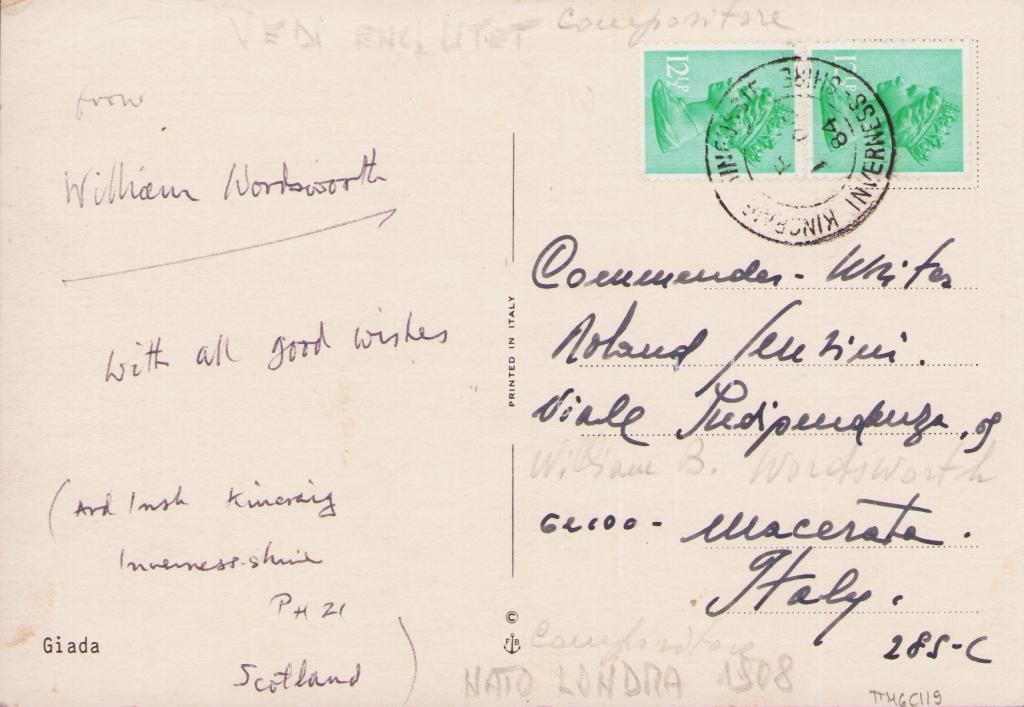 VEDI ENC. UTET Compositore
12½P 12½P
KINCRAIG INVERNESS-SHIRE
84
from
William Wordsworth
with all good wishes
(Ard Insh Kincraig
Inverness-shire
PH 21
Scotland)
Giada
PRINTED IN ITALY
©
FB
Commander - Writer
Roland Sensini.
Viale Indipendenza,
William B. Wordsworth
62100 - Macerata.
Italy.
285-C
Compositore
NATO LONDRA 1908
TTM6C119